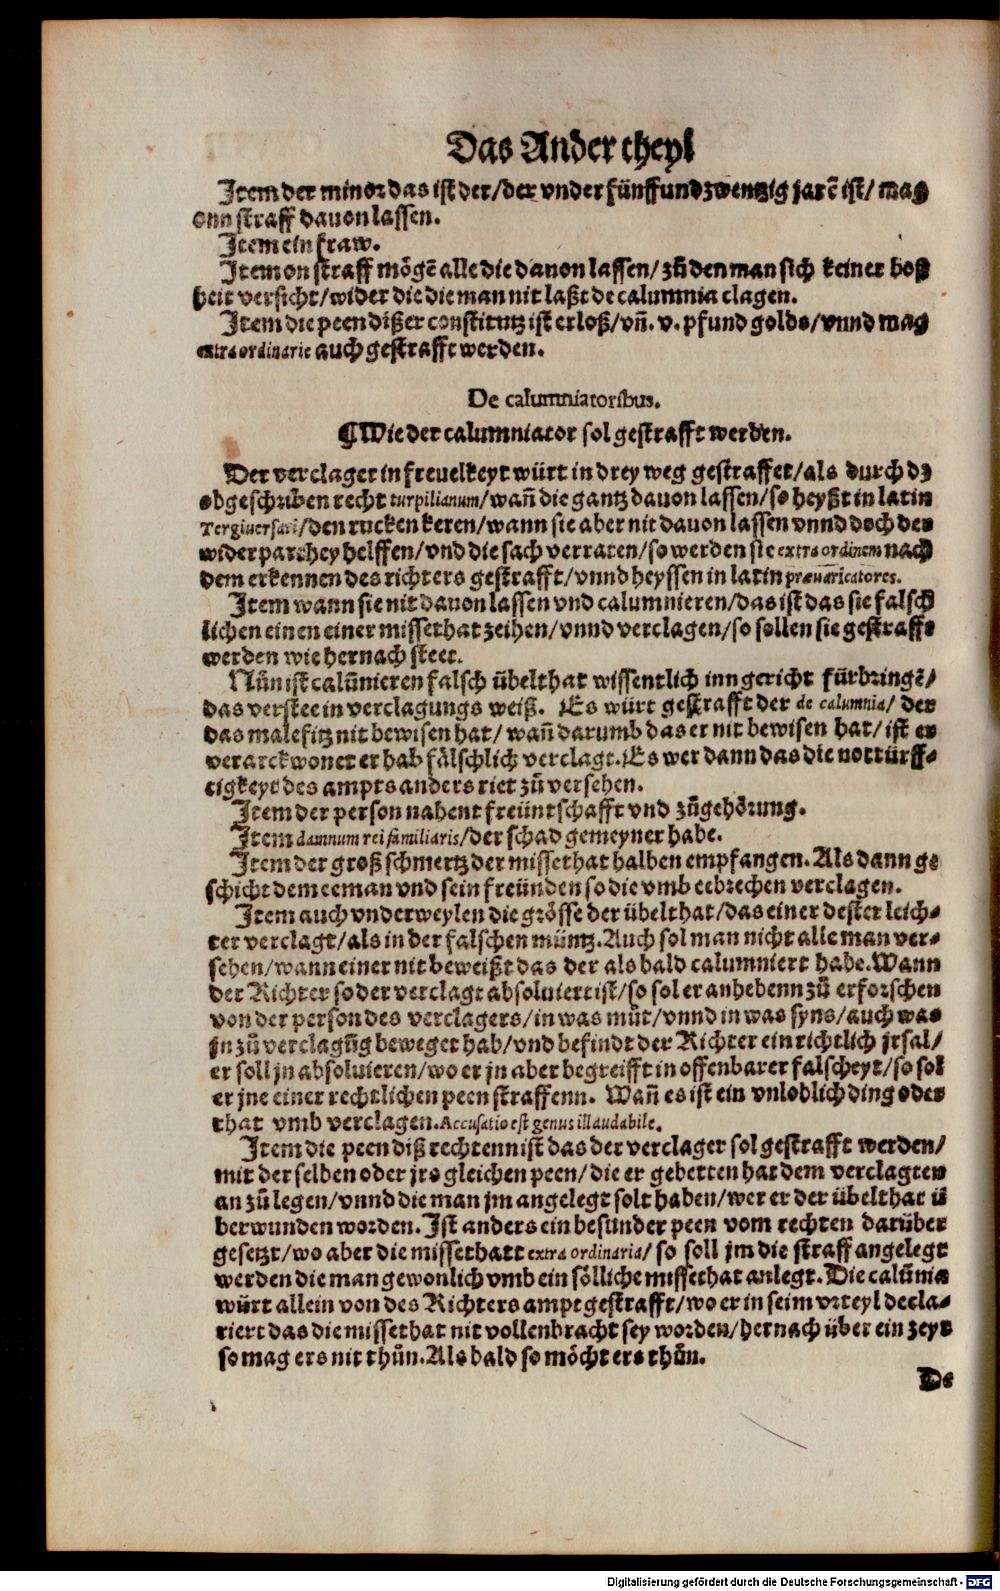 Das Ander theyl
Item der minor das ist der/der vnder fünff und zwentzig jarē ist/ mag
onn straff dauon lassen.
Item ein fraw.
Item on straff mögē alle die dauon lassen/ zů den man sich keiner boß
heit versicht/wider die die man nit laßt de calumnia clagen.
Item die peen dißer constitutz ist erloß/vñ. v. pfund golds/vnnd mag
extra ordinarie auch gestrafft werden.
De calumniatoribus.
¶Wie der calumniator sol gestrafft werden.
Der verclager in freuelkeyt würt in drey weg gestraffet/als durch dz
obgeschriben recht turpilianum/wañ die gantz dauon lassen/so heyßt in latin
Tergiuersari/den rucken keren/wann sie aber nit dauon lassen vnnd doch der
widerparthey helffen/vnd die sach verraten/so werden sie extra ordinem nach
dem erkennen des richters gestrafft/vnnd heyssen in latin præuaricatores.
Item wann sie nit dauon lassen vnd calumnieren/das ist das sie falsch
lichen einen einer missethat zeihen/vnnd verclagen/so sollen sie gestrafft
werden wie hernach steet.
Nůn ist calūnieren falsch übelthat wissentlich inn gericht fürbringē/
das verstee in verclagungs weiß. Es würt gestrafft der de calumnia/ der
das malefitz nit bewisen hat/ wañ darumb das er nit bewisen hat/ ist er
verarckwonet er hab fälschlich verclagt. Es wer dann das die nottürff-
tigkeyt des ampts anders riet zů versehen.
Item der person nahent freüntschafft vnd zůgehörung.
Item damnum rei familiaris/der schad gemeyner habe.
Item der groß schmertz der missethat halben empfangen. Als dann ge
schicht dem eeman vnd sein freünden so die vmb eebrechen verclagen.
Item auch vnderweylen die grösse der übelthat/das einer dester leich-
ter verclagt/als in der falschen müntz. Auch sol man nicht alle man ver-
sehen/wann einer nit beweißt das der als bald calumniert habe. Wann
der Richter so der verclagt absoluiert ist/so sol er anhebenn zů erforschen
von der person des verclagers/in was můt/vnnd in was syns/auch was
jn zů verclagūg beweget hab/vnd befindt der Richter ein richtlich jrsal/
er soll jn absoluieren/wo er jn aber begreifft in offenbarer falscheyt/so sol
er jne einer rechtlichen peen straffenn. Wañ es ist ein vnloblich ding oder
that vmb verclagen. Accusatio est genus illaudabile.
Item die peen diß rechtenn ist das der verclager sol gestrafft werden/
mit der selben oder jrs gleichen peen/die er gebetten hat dem verclagten
an zů legen/vnnd die man jm angelegt solt haben/wer er der übelthat ü
berwunden worden. Ist anders ein besunder peen vom rechten darüber
gesetzt/wo aber die missethatt extra ordinaria/ so soll jm die straff angelegt
werden die man gewonlich vmb ein sölliche missethat anlegt. Die calūnia
würt allein von des Richters ampt gestrafft/wo er in seim vrteyl decla-
riert das die missethat nit vollenbracht sey worden/hernach über ein zeyt
so mag ers nit thůn. Als bald so möcht ers thůn.
De
Digitalisierung gefördert durch die Deutsche Forschungsgemeinschaft - DFG